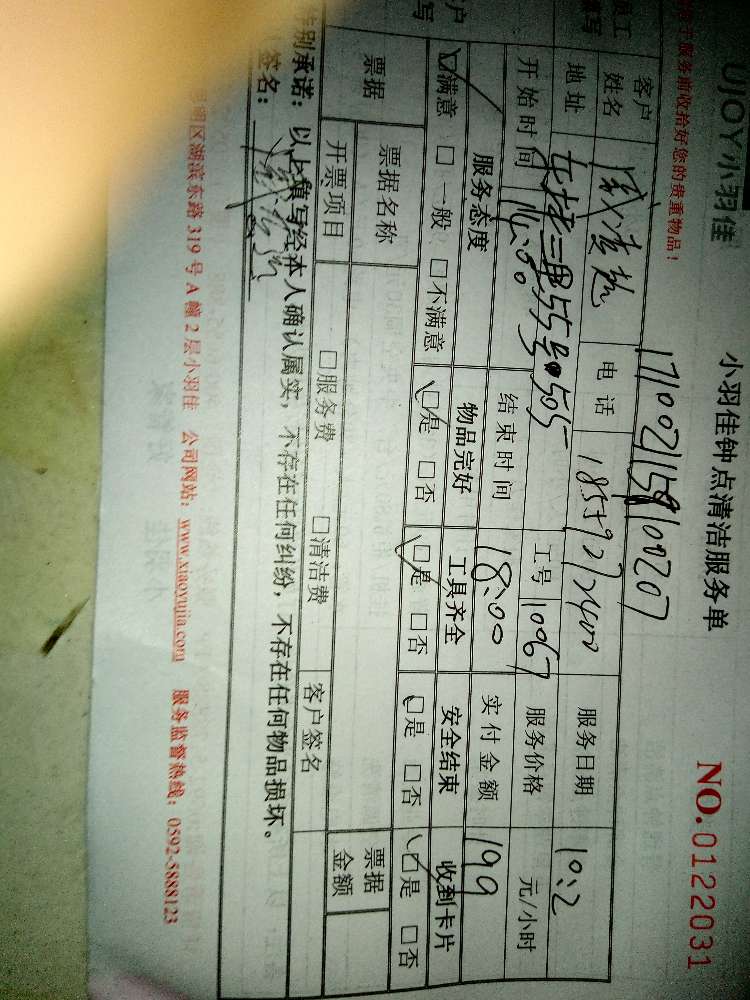 UJOY小羽佳
小羽佳钟点清洁服务单
NO.0122031
于服务前收拾好您的贵重物品!
1710021159100207
员工
填写
客户
姓名
电话
服务日期 10:2
地址
工号 10067
服务价格 元/小时
开始时间 14:00 结束时间 18:00 实付金额 199
户
写
服务态度 物品完好 工具齐全 安全结束 收到卡片
☑满意 □一般 □不满意 ☑是 □否 ☑是 □否 ☑是 □否 ☑是 □否
票据
票据名称
票据
金额
开票项目 □服务费 □清洁费 客户签名
特别承诺:以上填写经本人确认属实,不存在任何纠纷,不存在任何物品损坏。
签名:
思明区湖滨东路319号A幢2层小羽佳 公司网站:www.xiaoyujia.com 服务监督热线:0592-5888123